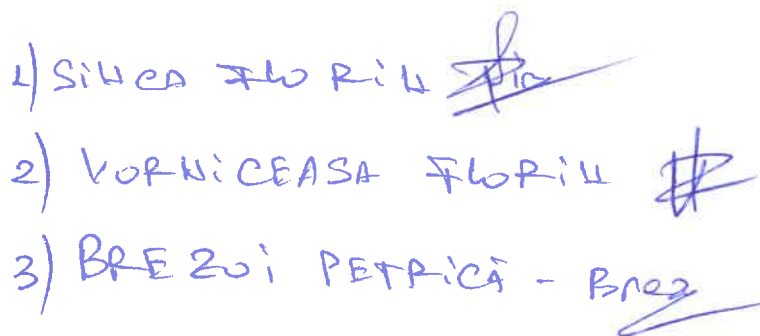 1) SiNCA FLORiN
2) VORNiCEASA FLORiN
3) BREZOi PETRiCĂ - Brez